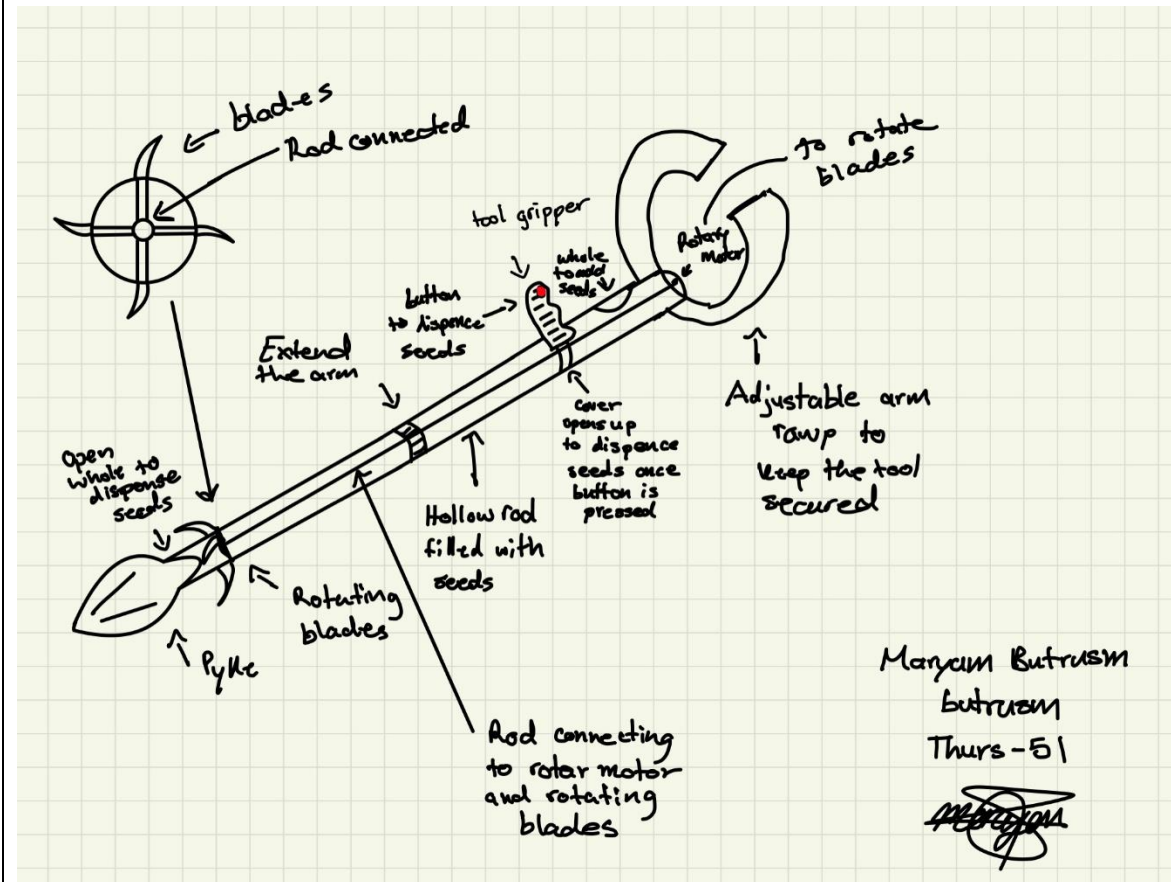 blades
Rod connected
to rotate
blades
tool gripper
Rotary
motor
whole
to add
seeds
button
to dispence
seeds
Extend
the arm
cover
opens up
to dispance
seeds once
button is
pressed
Adjustable arm
rowp to
keep the tool
secured
open
whole to
dispense
seeds
Hollow rod
filled with
seeds
Rotating
blades
Pyke
Rod connecting
to rotar motor
and rotating
blades
Maryam Butrusm
butrusm
Thurs-51